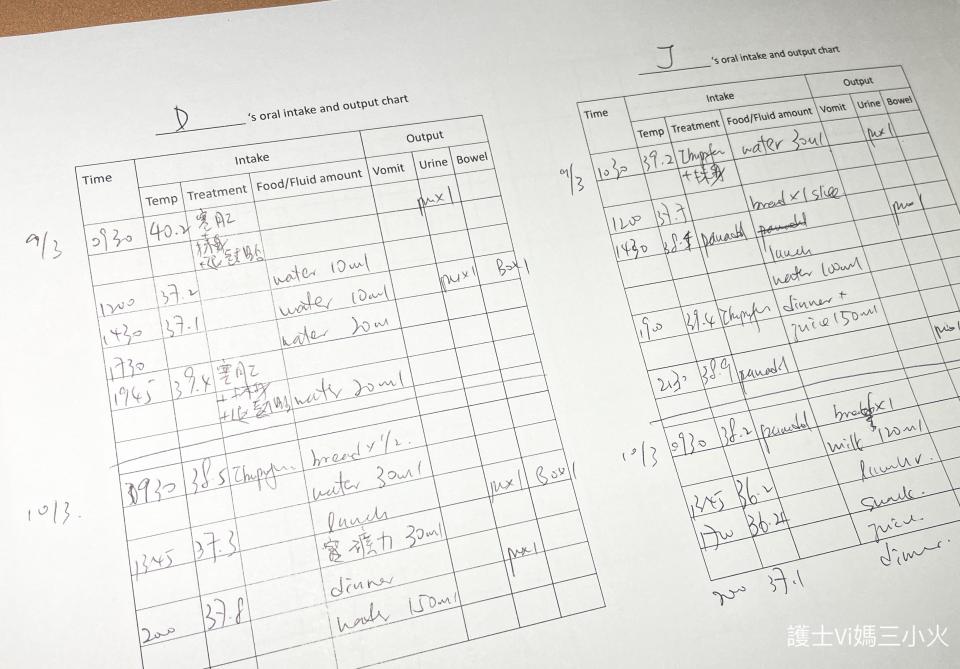 D 's oral intake and output chart
Time Intake Output
Temp Treatment Food/Fluid amount Vomit Urine Bowel
9/3 0930 40.2 pu x1
water 10ml
1200 37.2 water 10ml pu x1 BO x1
1430 37.1 water 20ml
1730
1945 39.4 water 20ml
10/3. 0930 38.5 bread x 1/2.
water 30ml
lunch pu x1 BO x1
1345 37.3 30ml
dinner pu x1
2000 37.8 150ml
J 's oral intake and output chart
Time Intake Output
Temp Treatment Food/Fluid amount Vomit Urine Bowel
9/3 1030 39.2 water 30ml pu x1
1200 37.7 bread x 1 slice
1430 panadol pu x1
lunch
water 100ml
1900 39.4 dinner +
juice 150ml
2130 38.9 panadol
10/3 0930 38.2 panadol
milk 120ml
1345 36.2
1700 36.4 snack.
juice.
2000 37.1 dinner.
護士Vi媽三小火